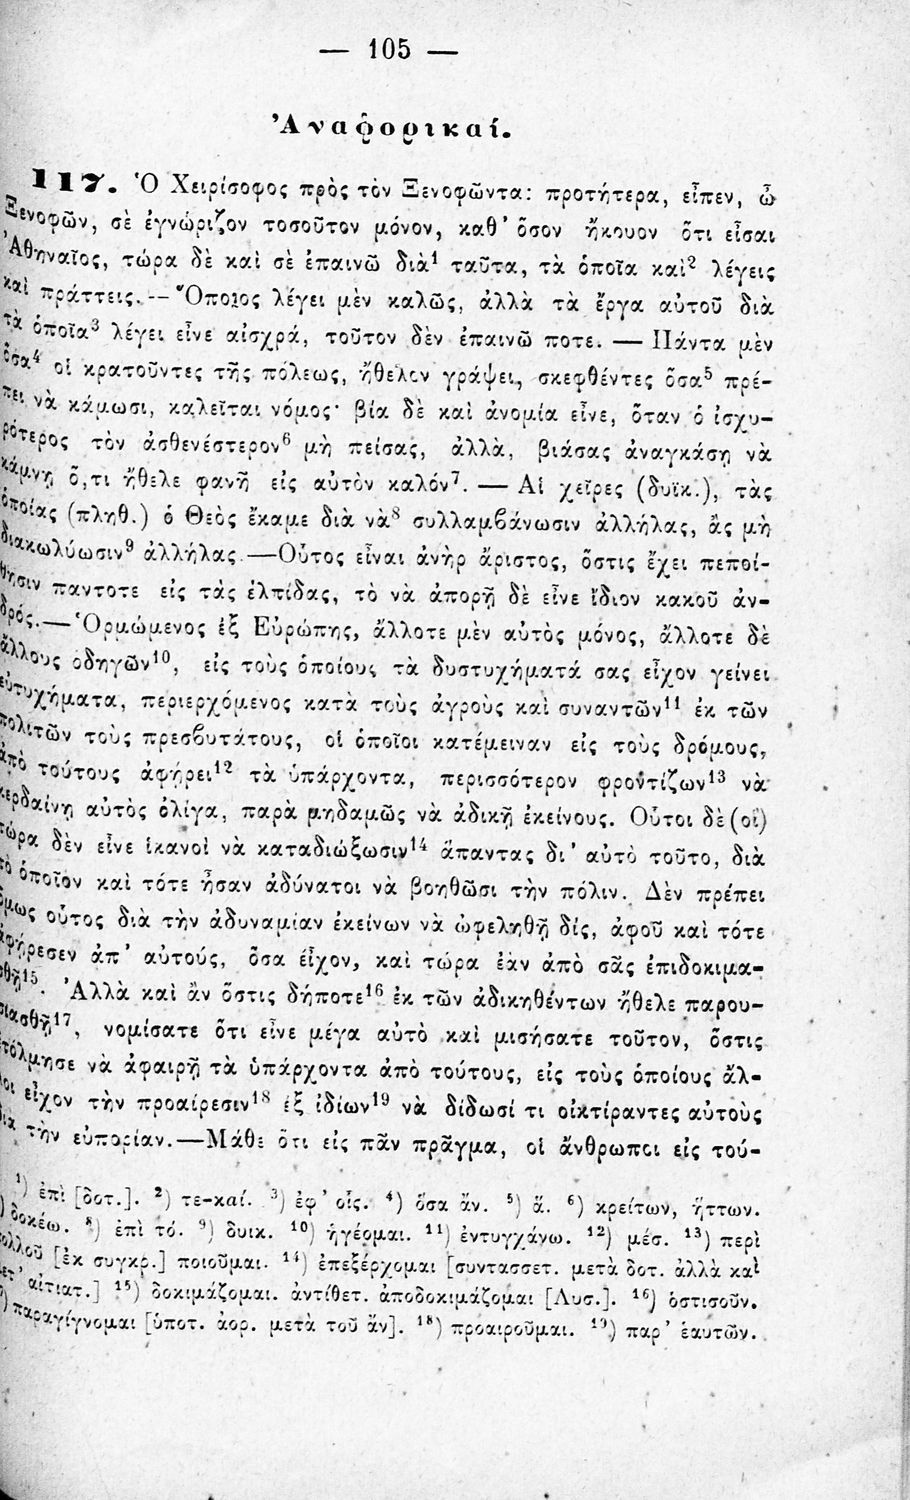 — 105 —
Ἀναφορικαί.
117. Ὁ Χειρίσοφος πρὸς τὸν Ξενοφῶντα: προτήτερα, εἶπεν, ὦ
Ξενοφῶν, σὲ ἐγνώριζον τοσοῦτον μόνον, καθ' ὅσον ἤκουον ὅτι εἶσαι
Ἀθηναῖος, τώρα δὲ καὶ σὲ ἐπαινῶ διὰ¹ ταῦτα, τὰ ὁποῖα καὶ² λέγεις
καὶ πράττεις.—Ὅποιος λέγει μὲν καλῶς, ἀλλὰ τὰ ἔργα αὐτοῦ διὰ
τὰ ὁποῖα³ λέγει εἶνε αἰσχρά, τοῦτον δὲν ἐπαινῶ ποτε. — Πάντα μὲν
ὅσα⁴ οἱ κρατοῦντες τῆς πόλεως, ἤθελον γράψει, σκεφθέντες ὅσα⁵ πρέ-
πει νὰ κάμωσι, καλεῖται νόμος· βία δὲ καὶ ἀνομία εἶνε, ὅταν ὁ ἰσχυ-
ρότερος τὸν ἀσθενέστερον⁶ μὴ πείσας, ἀλλὰ, βιάσας ἀναγκάσῃ νὰ
κάμνῃ ὅ,τι ἤθελε φανῆ εἰς αὐτὸν καλόν⁷. — Αἱ χεῖρες (δυϊκ.), τὰς
ὁποίας (πληθ.) ὁ Θεὸς ἔκαμε διὰ νὰ⁸ συλλαμβάνωσιν ἀλλήλας, ἂς μὴ
διακωλύωσιν⁹ ἀλλήλας.—Οὗτος εἶναι ἀνὴρ ἄριστος, ὅστις ἔχει πεποί-
θησιν παντοτε εἰς τὰς ἐλπίδας, τὸ νὰ ἀπορῇ δὲ εἶνε ἴδιον κακοῦ ἀν-
δρός.—Ὁρμώμενος ἐξ Εὐρώπης, ἄλλοτε μὲν αὐτὸς μόνος, ἄλλοτε δὲ
ἄλλους ὁδηγῶν¹⁰, εἰς τοὺς ὁποίους τὰ δυστυχήματά σας εἶχον γείνει
εὐτυχήματα, περιερχόμενος κατὰ τοὺς ἀγροὺς καὶ συναντῶν¹¹ ἐκ τῶν
πολιτῶν τοὺς πρεσβυτάτους, οἱ ὁποῖοι κατέμειναν εἰς τοὺς δρόμους,
ἀπὸ τούτους ἀφῄρει¹² τὰ ὑπάρχοντα, περισσότερον φροντίζων¹³ νὰ
κερδαίνῃ αὐτὸς ὀλίγα, παρὰ μηδαμῶς νὰ ἀδικῇ ἐκείνους. Οὗτοι δὲ (οἱ)
τώρα δὲν εἶνε ἱκανοὶ νὰ καταδιώξωσιν¹⁴ ἅπαντας δι' αὐτὸ τοῦτο, διὰ
τὸ ὁποῖον καὶ τότε ἦσαν ἀδύνατοι νὰ βοηθῶσι τὴν πόλιν. Δὲν πρέπει
ὅμως οὗτος διὰ τὴν ἀδυναμίαν ἐκείνων νὰ ὠφεληθῇ δίς, ἀφοῦ καὶ τότε
ἀφῄρεσεν ἀπ' αὐτούς, ὅσα εἶχον, καὶ τώρα ἐὰν ἀπὸ σᾶς ἐπιδοκιμα-
σθῇ¹⁵. Ἀλλὰ καὶ ἂν ὅστις δήποτε¹⁶ ἐκ τῶν ἀδικηθέντων ἤθελε παρου-
σιασθῇ¹⁷, νομίσατε ὅτι εἶνε μέγα αὐτὸ καὶ μισήσατε τοῦτον, ὅστις
ἐτόλμησε νὰ ἀφαιρῇ τὰ ὑπάρχοντα ἀπὸ τούτους, εἰς τοὺς ὁποίους ἄλ-
λοι εἶχον τὴν προαίρεσιν¹⁸ ἐξ ἰδίων¹⁹ νὰ δίδωσί τι οἰκτίραντες αὐτοὺς
διὰ τὴν εὐπορίαν.—Μάθε ὅτι εἰς πᾶν πρᾶγμα, οἱ ἄνθρωποι εἰς τού-
¹) ἐπὶ [δοτ.]. ²) τε-καί. ³) ἐφ' οἷς. ⁴) ὅσα ἄν. ⁵) ἅ. ⁶) κρείτων, ἥττων.
⁷) δοκέω. ⁸) ἐπὶ τό. ⁹) δυικ. ¹⁰) ἡγέομαι. ¹¹) ἐντυγχάνω. ¹²) μέσ. ¹³) περὶ
πολλοῦ [ἐκ συγκρ.] ποιοῦμαι. ¹⁴) ἐπεξέρχομαι [συντασσετ. μετὰ δοτ. ἀλλὰ καὶ
μετ' αἰτιατ.] ¹⁵) δοκιμάζομαι. ἀντίθετ. ἀποδοκιμάζομαι [Λυσ.]. ¹⁶) ὁστισοῦν.
¹⁷) παραγίγνομαι [ὑποτ. ἀορ. μετὰ τοῦ ἄν]. ¹⁸) προαιροῦμαι. ¹⁹) παρ' ἑαυτῶν.